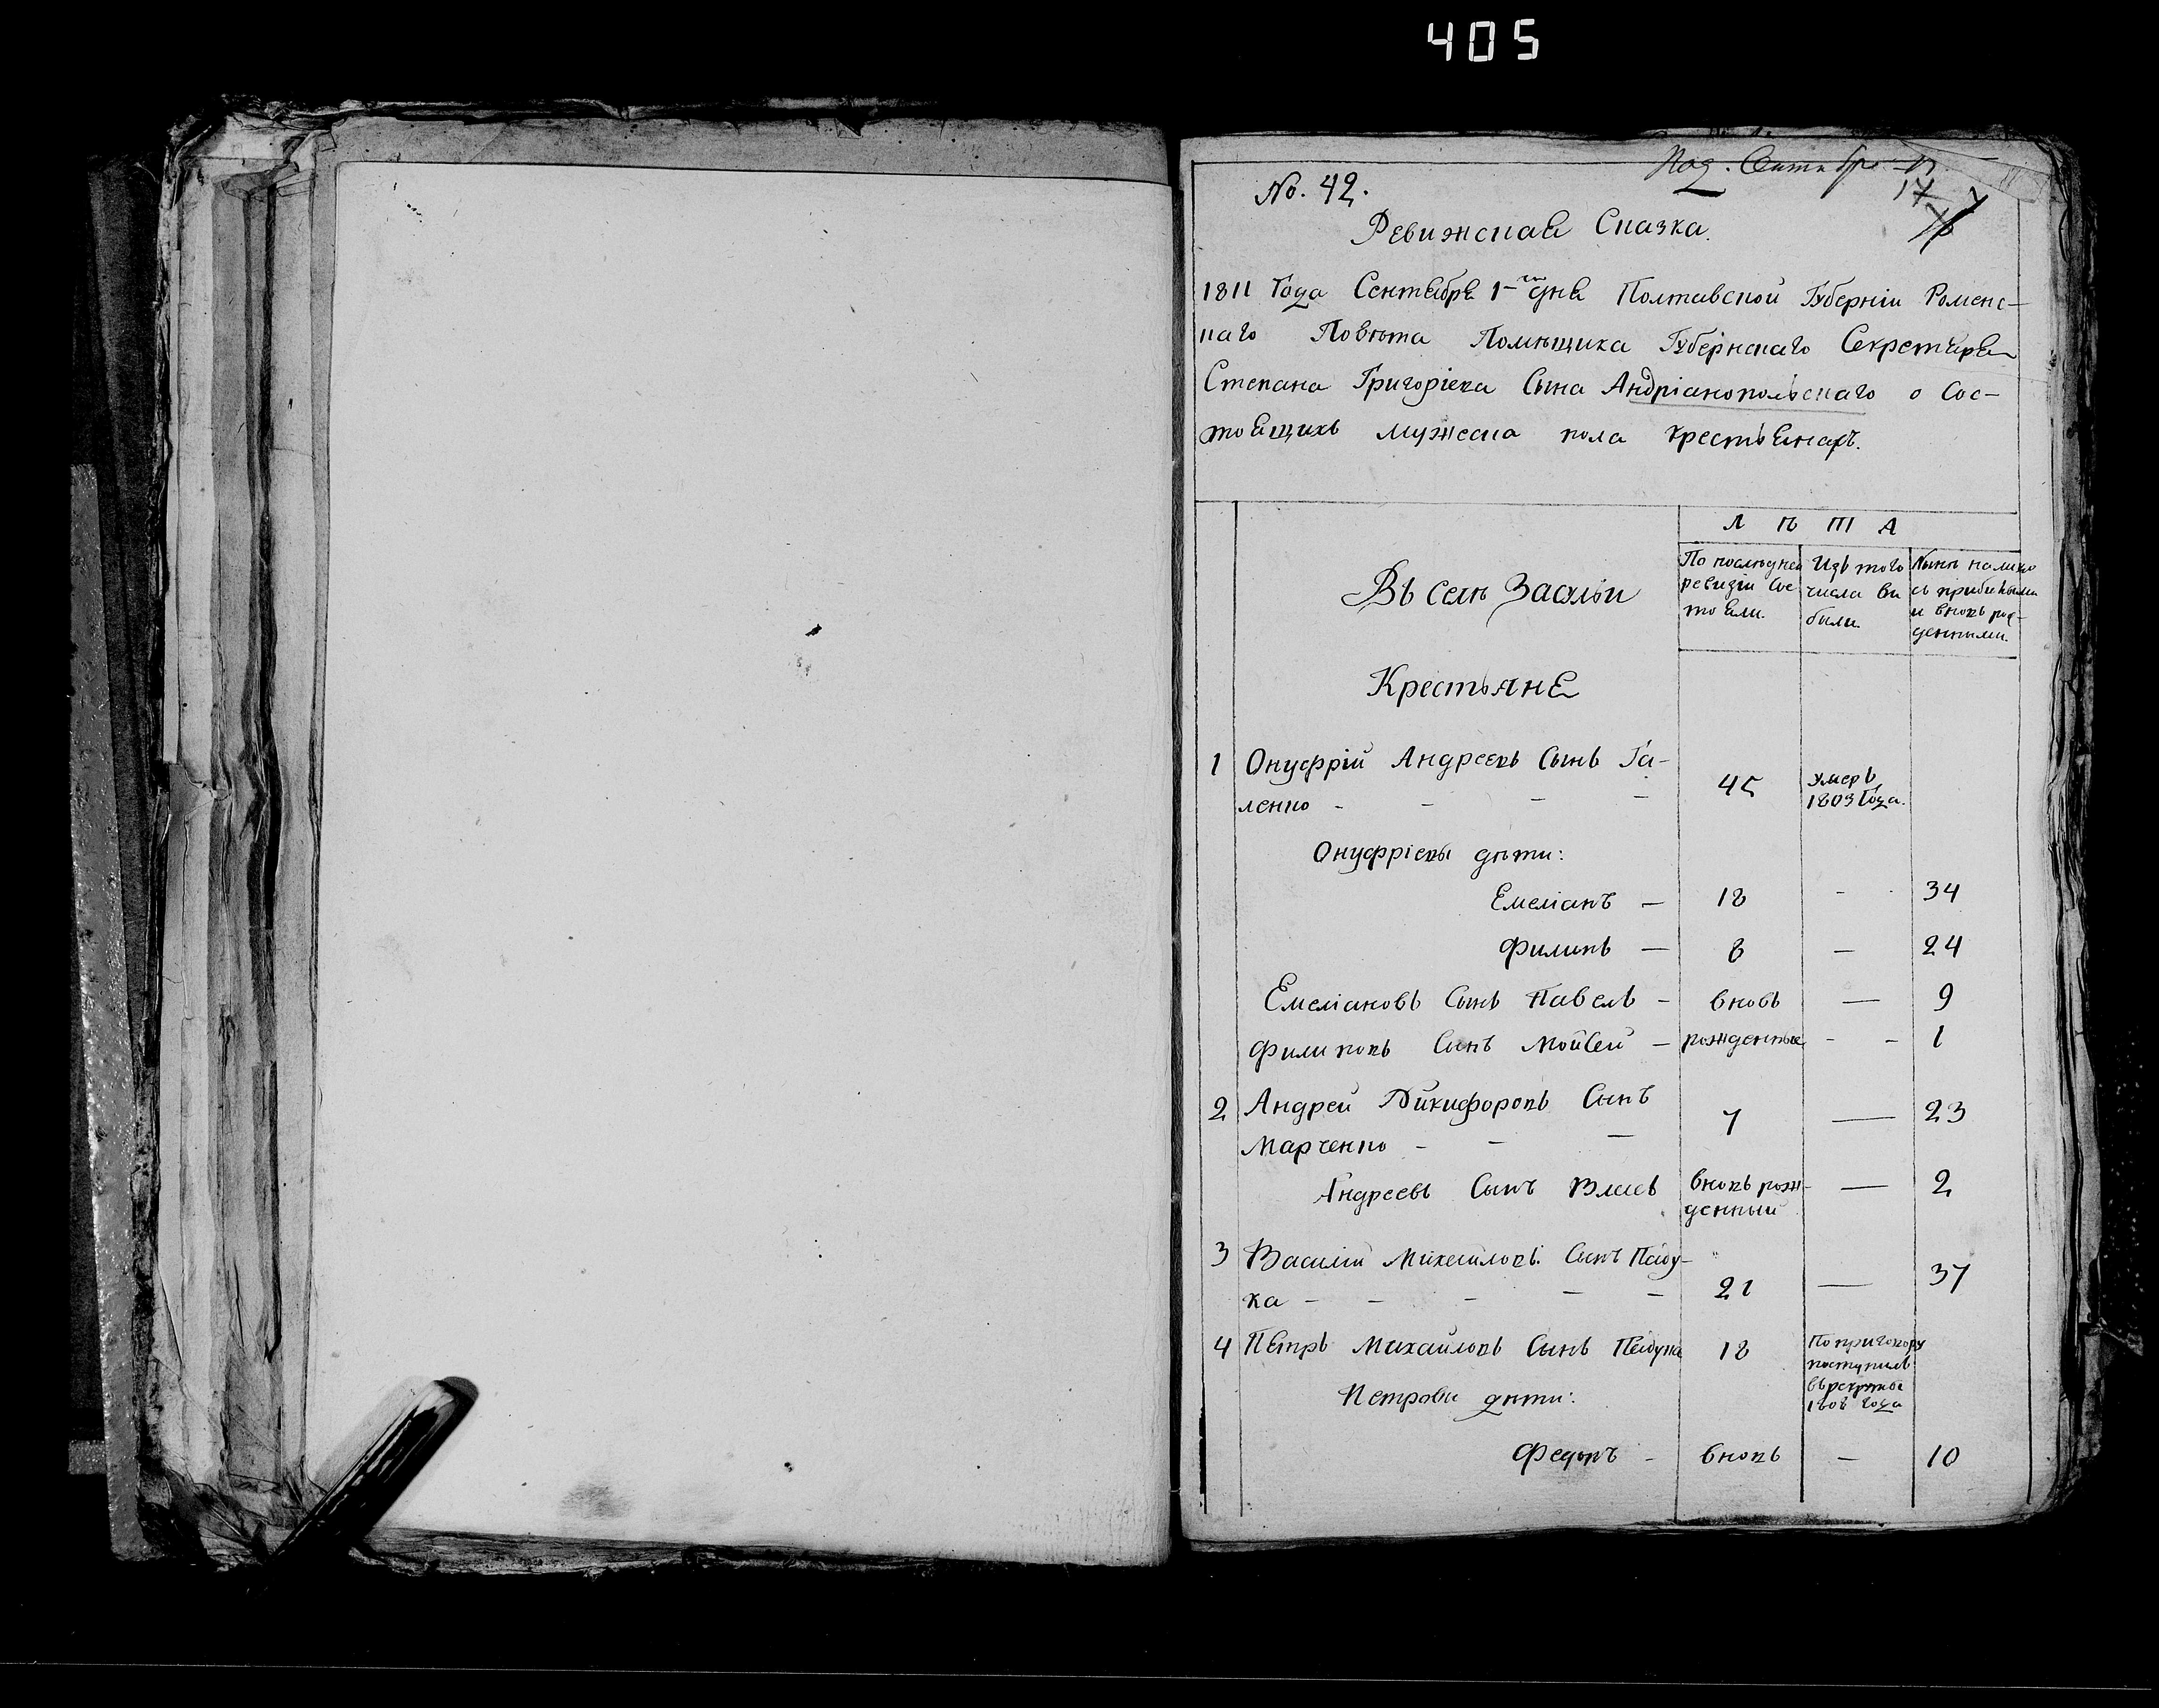 405
No. 42.
Ревижская Сказка.
1811 Года Сентября 1-го дня Полтавской Губерніи Роменс-
каго Повѣта Помѣщика Губернскаго Секретаря
Степана Григоріева Сына Андріанопольскаго о Сос-
тоящихъ мужеска пола крестьянахъ.
Л ѣ т а
Въ Селѣ Засульи
По послѣдней ревизіи Сос
тояли.
Изъ того
числа вы
были.
Нынѣ налицо
съ прибылыми
и вновь рож-
денными.
Крестьяне
1 Онуфрій Андреевъ Сынъ Га-
ленко - - - - 45 Умеръ 1803 Года.
Онуфріевы дѣти:
Емеліанъ — 18 - - 34
Филипъ — 8 — 24
Емеліановъ Сынъ Павелъ - вновь — 9
Филиповъ Сынъ Мойсей — рожденные - - 1
2 Андрей Никифоровъ Сынъ
Марченко - - — 7 — 23
Андреевъ Сынъ вновь рож-
денный — 2
3 Василій Михайловъ Сынъ
ка - - - - - 21 — 37
4 Петръ Михайловъ Сынъ 18 По приговору
поступилъ
въ рекруты
1808 года
Петровы дѣти:
Федоръ - вновь — 10